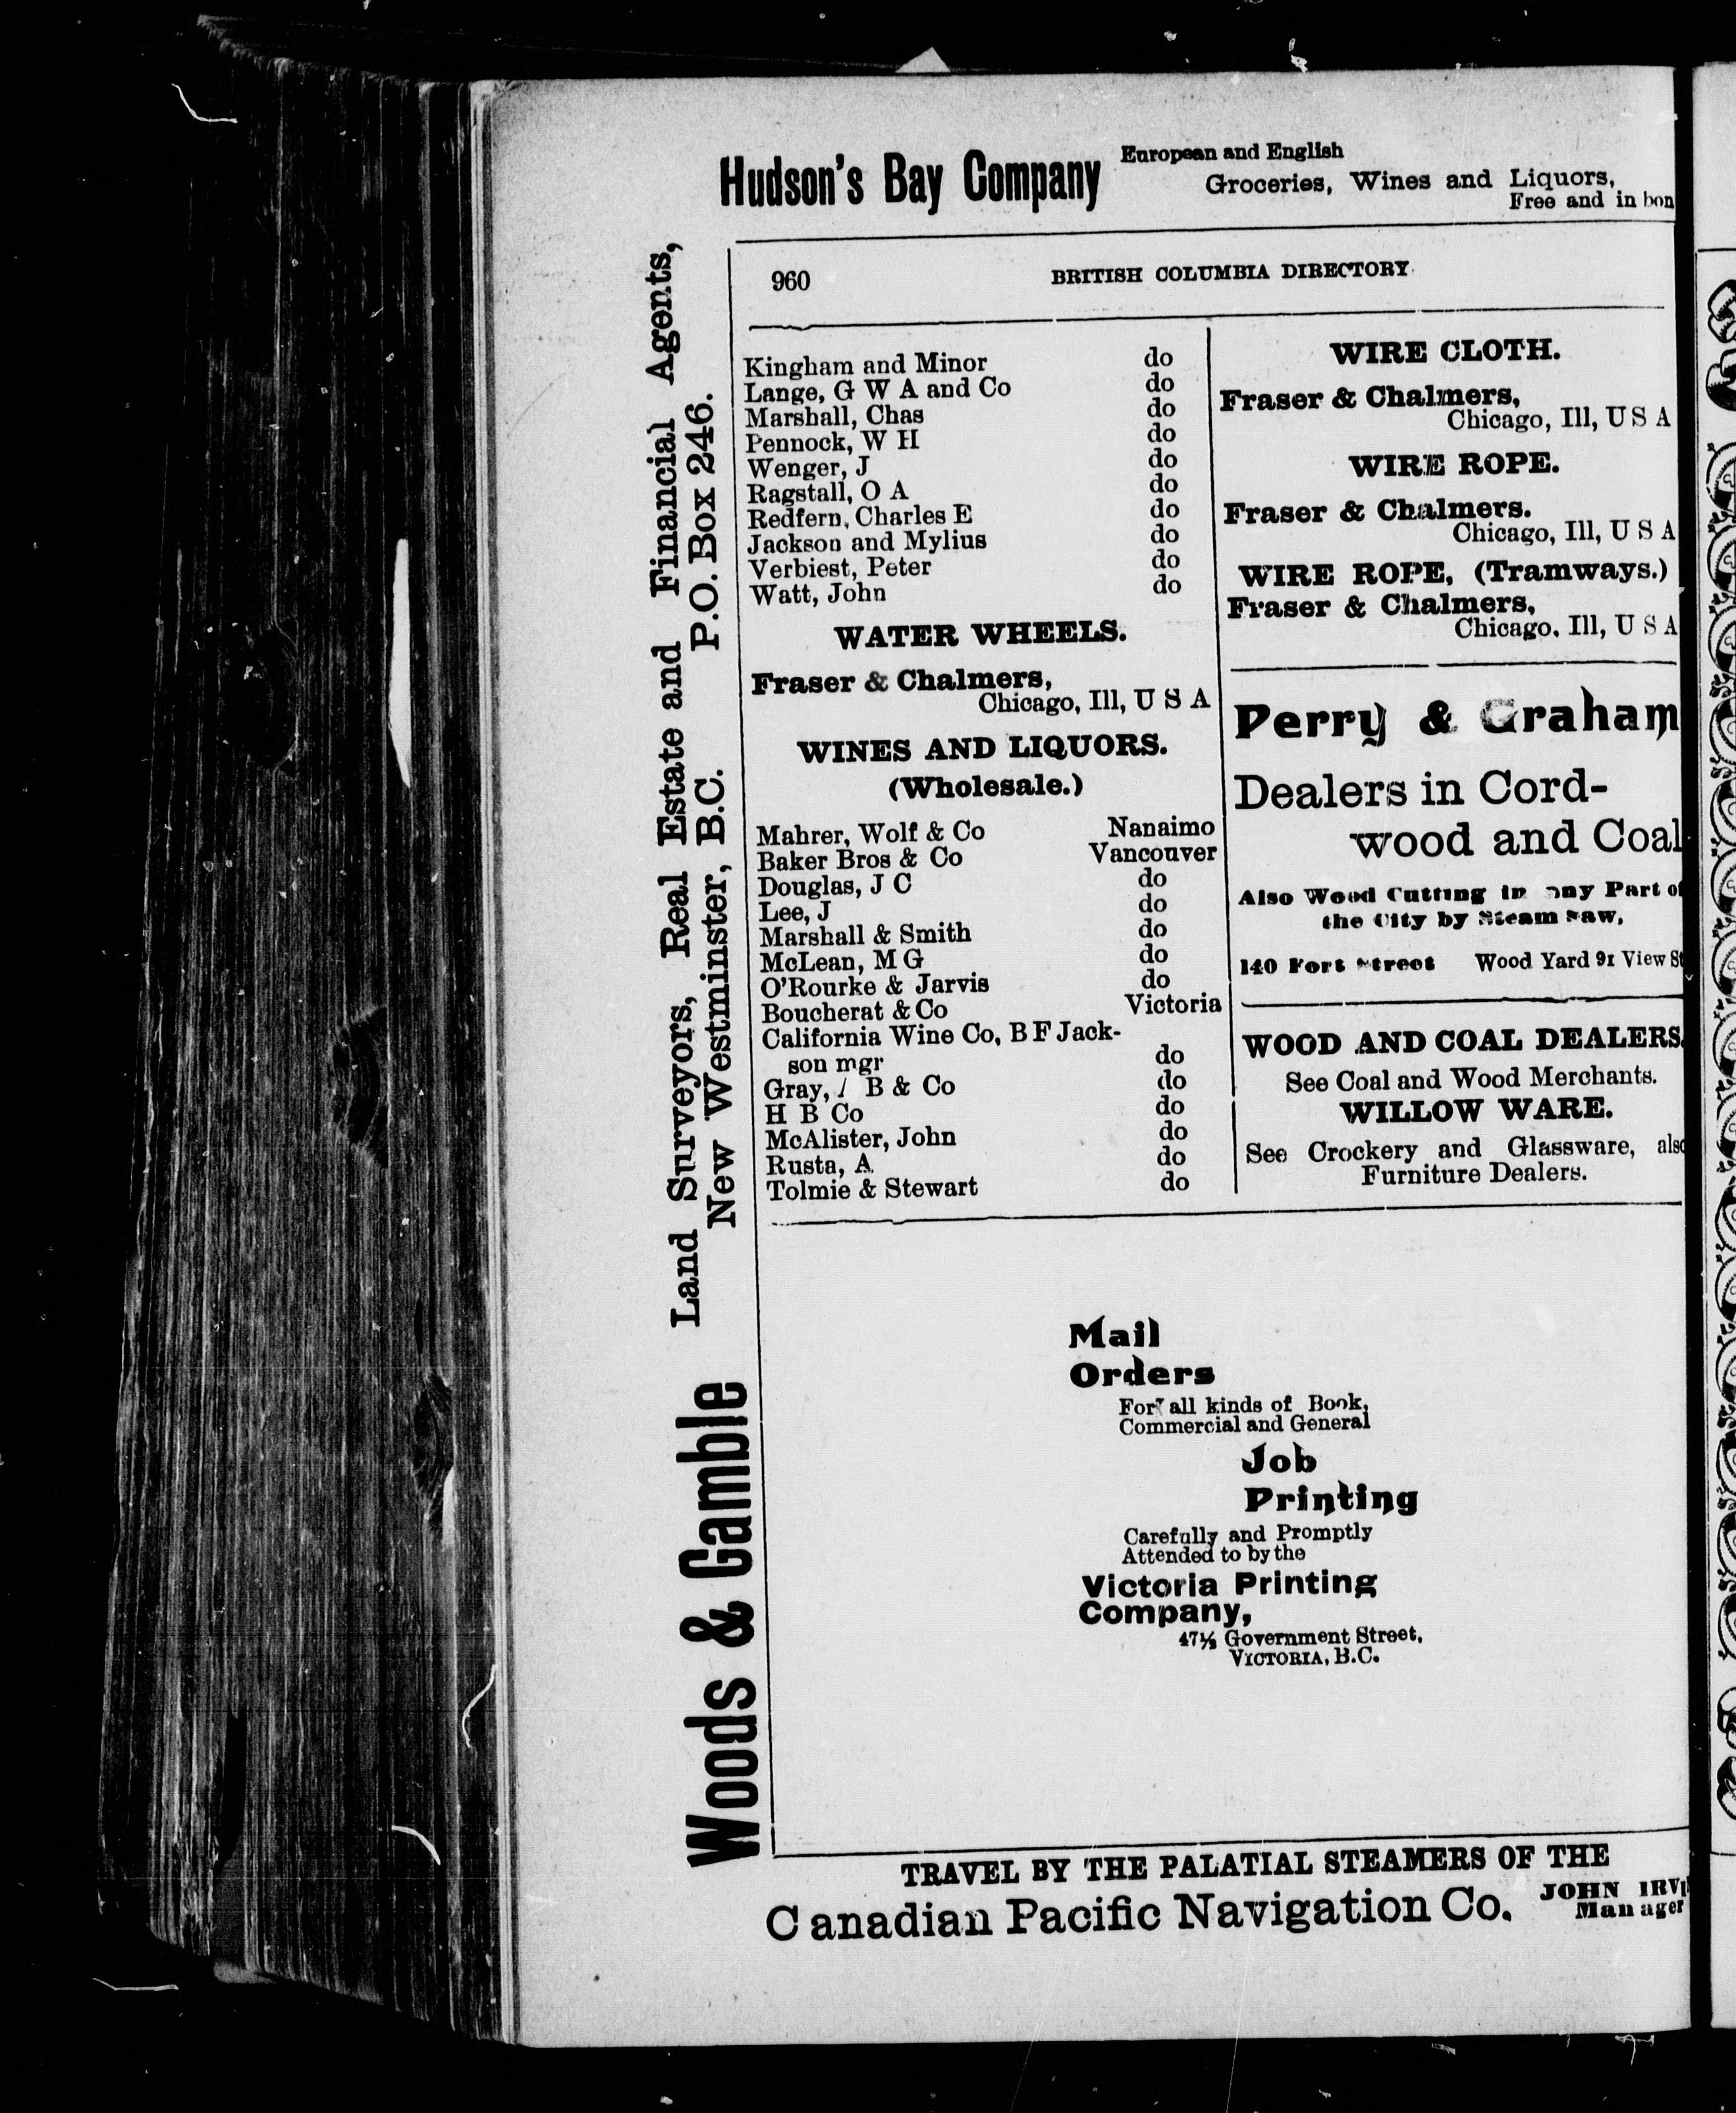 Hudson's Bay Company
European and English
Groceries, Wines and Liquors,
Free and in bon
960
BRITISH COLUMBIA DIRECTORY.
Kingham and Minor do
Lange, G W A and Co do
Marshall, Chas do
Pennock, W H do
Wenger, J do
Ragstall, O A do
Redfern, Charles E do
Jackson and Mylius do
Verbiest, Peter do
Watt, John do
WATER WHEELS.
Fraser & Chalmers,
Chicago, Ill, U S A
WINES AND LIQUORS.
(Wholesale.)
Mahrer, Wolf & Co Nanaimo
Baker Bros & Co Vancouver
Douglas, J C do
Lee, J do
Marshall & Smith do
McLean, M G do
O'Rourke & Jarvis do
Boucherat & Co Victoria
California Wine Co, B F Jack-
son mgr do
Gray, B & Co do
H B Co do
McAlister, John do
Rusta, A do
Tolmie & Stewart do
WIRE CLOTH.
Fraser & Chalmers,
Chicago, Ill, U S A
WIRE ROPE.
Fraser & Chalmers.
Chicago, Ill, U S A
WIRE ROPE, (Tramways.)
Fraser & Chalmers,
Chicago. Ill, U S A
Perry & Graham
Dealers in Cord-
wood and Coal
Also Wood Cutting in any Part of
the City by Steam Saw,
140 Fort Street Wood Yard 91 View St
WOOD AND COAL DEALERS.
See Coal and Wood Merchants.
WILLOW WARE.
See Crockery and Glassware, also
Furniture Dealers.
Mail
Orders
For all kinds of Book,
Commercial and General
Job
Printing
Carefully and Promptly
Attended to by the
Victoria Printing
Company,
47½ Government Street,
VICTORIA, B.C.
Woods & Gamble
Land Surveyors, Real Estate and Financial Agents,
New Westminster, B.C. P.O. Box 246.
TRAVEL BY THE PALATIAL STEAMERS OF THE
Canadian Pacific Navigation Co.
JOHN IRVI
Manager